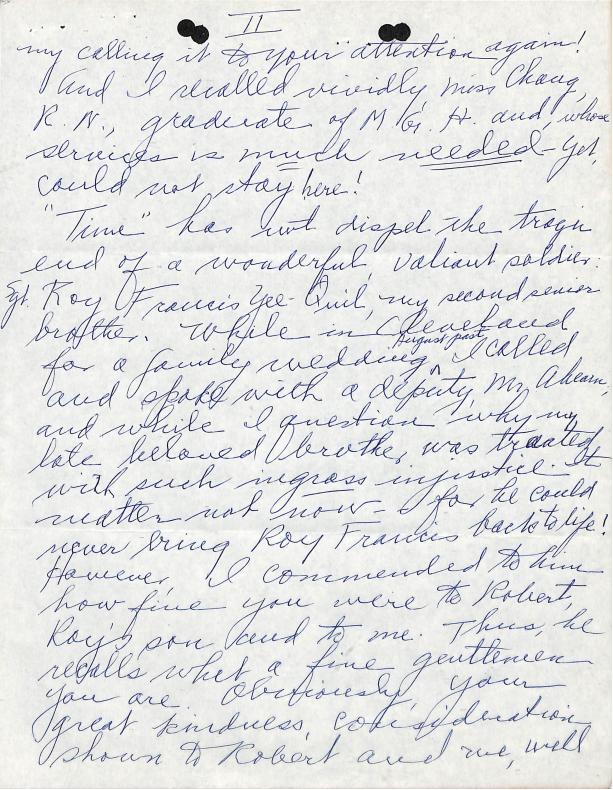 II
my calling it to your attention again!
And I recalled vividly Miss Chang,
R.N., graduate of M.G.H. and, whose
services is much needed - yet,
could not stay here!
"Time" has not dispel the tragic
end of a wonderful, valiant soldier:
Sgt. Roy Francis Yee-Quil, my second senior
brother. While in Cleveland
for a family wedding August past I called
and spoke with a deputy, Mr. Ahearn,
and while I question why my
late beloved brother was treated
with such in gross injustice. It
matter not now - for he could
never bring Roy Francis back to life!
However, I commended to him
how fine you were to Robert,
Roy's son and to me. Thus, he
recalls what a fine gentlemen
you are. Obviously, your
great kindness, consideration
shown to Robert and me, well